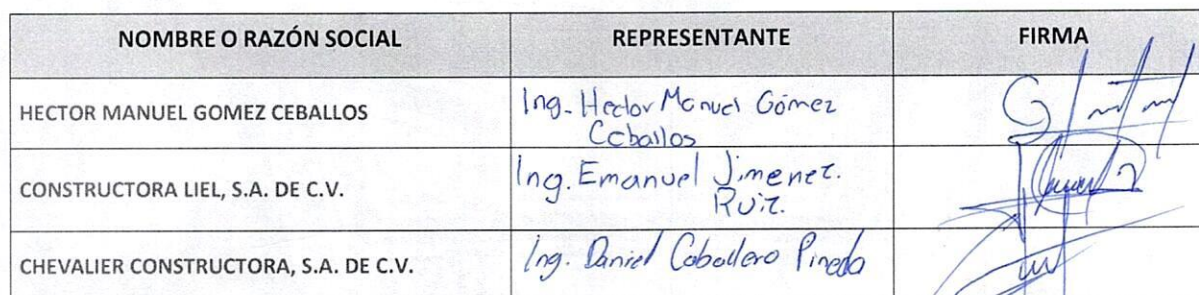 NOMBRE O RAZÓN SOCIAL REPRESENTANTE FIRMA
HECTOR MANUEL GOMEZ CEBALLOS Ing. Hector Manuel Gómez
Ceballos
CONSTRUCTORA LIEL, S.A. DE C.V. Ing. Emanuel Jimenez.
Ruiz.
CHEVALIER CONSTRUCTORA, S.A. DE C.V. Ing. Daniel Caballero Pineda